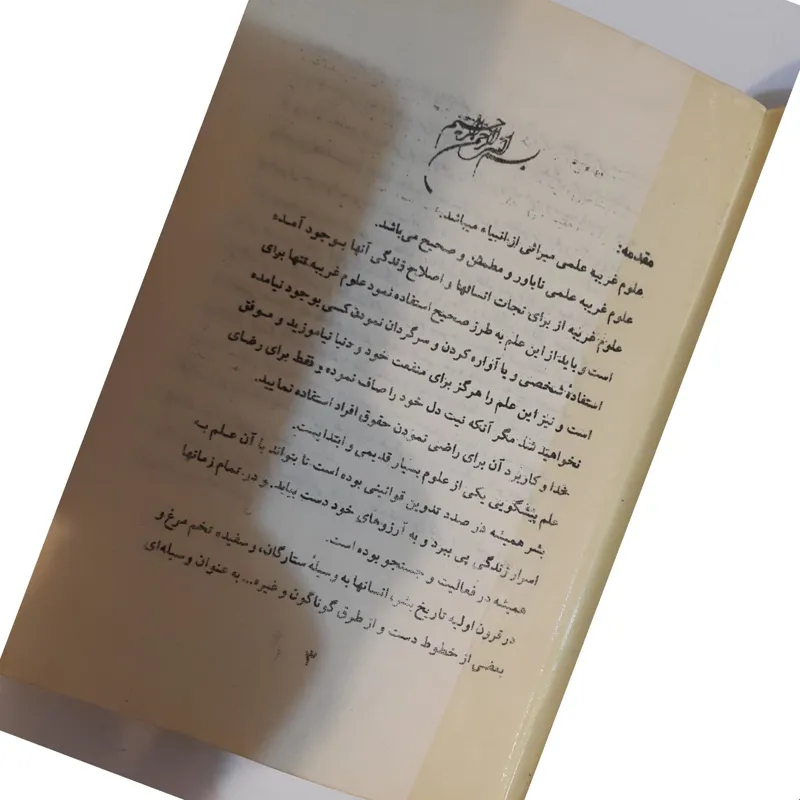 بسم الله الرحمن الرحیم
مقدمه:
علوم غریبه علمی میراثی از انبیاء میباشد.
علوم غریبه علمی ناباور و مطمئن و صحیح می‌باشد.
علوم غریبه از برای نجات انسانها و اصلاح زندگی آنها بوجود آمده
است و باید از این علم به طرز صحیح استفاده نمود علوم غریبه تنها برای
استفادهٔ شخصی و یا آواره کردن و سرگردان نمودن کسی بوجود نیامده
است و نیز این علم را هرگز برای منفعت خود و دنیا نیاموزید و موفق
نخواهید شد مگر آنکه نیت دل خود را صاف نموده و فقط برای رضای
خدا و کاربرد آن برای راضی نمودن حقوق افراد استفاده نمایید.
علم پیشگویی یکی از علوم بسیار قدیمی و ابتدا یست.
بشر همیشه در صدد تدوین قوانینی بوده است تا بتواند با آن علم به
اسرار زندگی پی ببرد و به آرزوهای خود دست بیابد. و در تمام زمانها
همیشه در فعالیت و جستجو بوده است.
در قرون اولیه تاریخ بشر، انسانها به وسیلهٔ ستارگان، و سفیده تخم مرغ و
بعضی از خطوط دست و از طرق گوناگون و غیره... به عنوان وسیله‌ای
۳